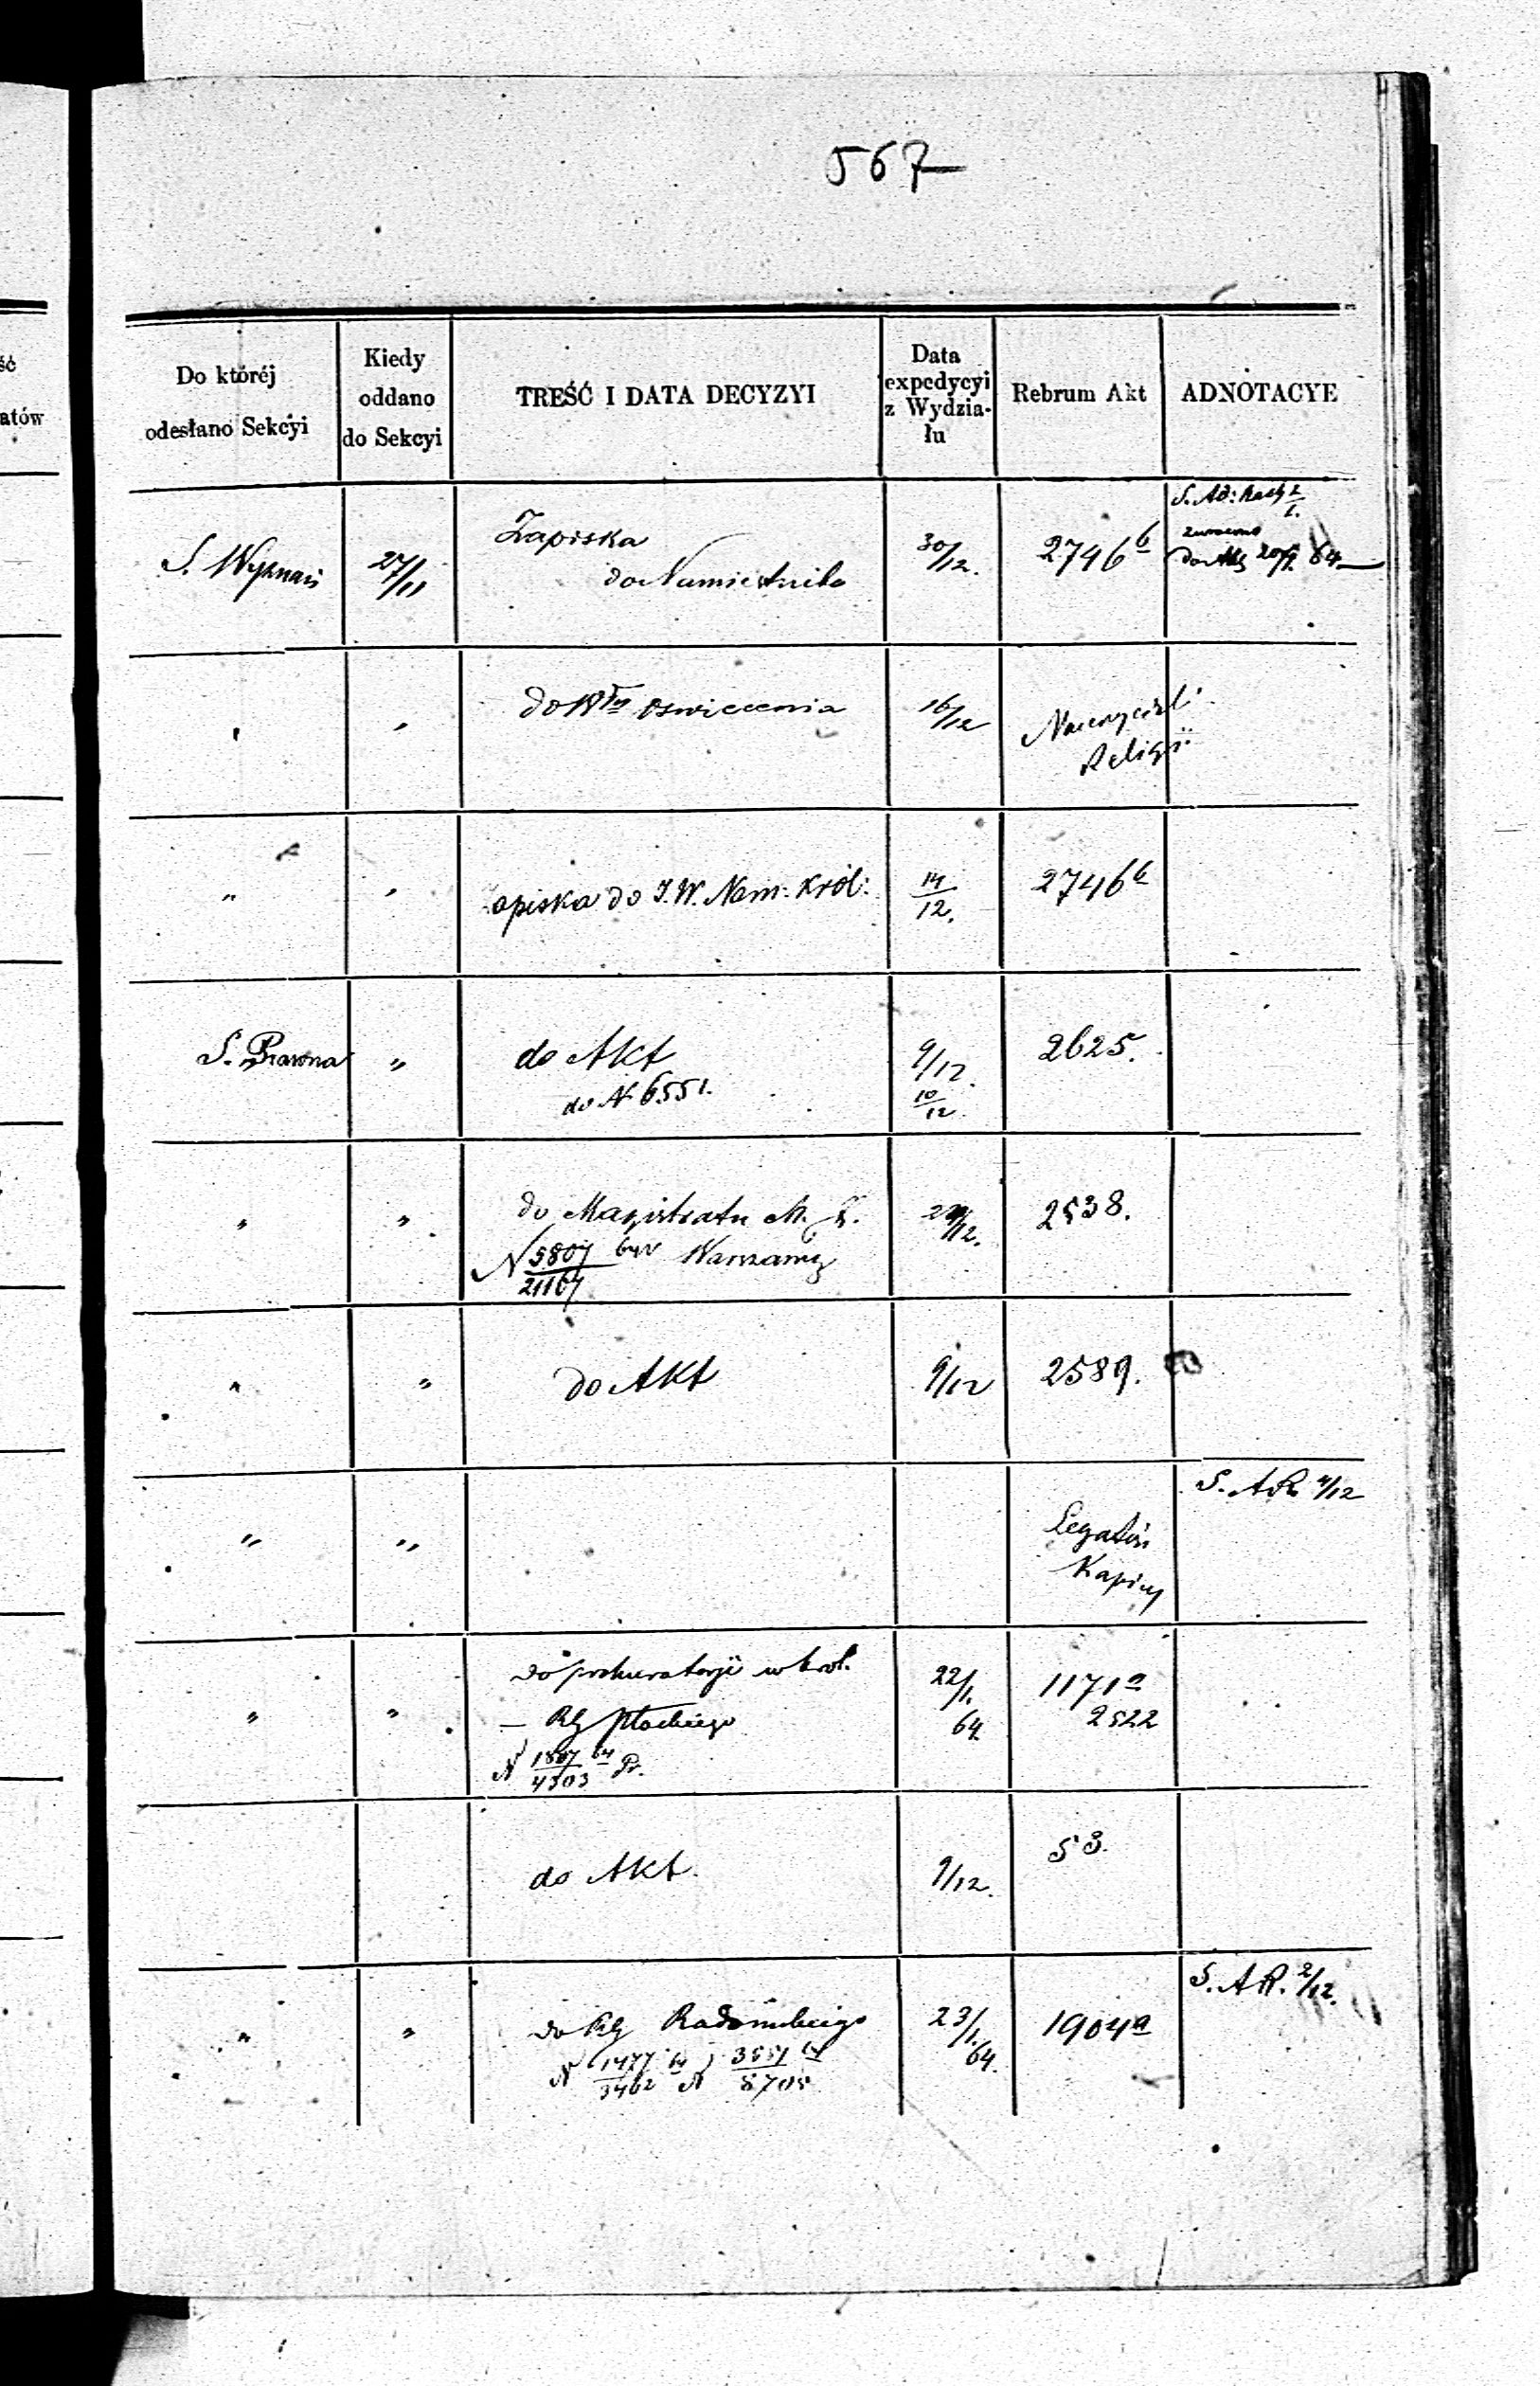 567
ść
atów
Do któréj
odesłano Sekcyi
Kiedy
oddano
do Sekcyi
TREŚĆ I DATA DECYZYI
Data
expedycyi
z Wydzia-
łu
Rebrum Akt
ADNOTACYE
S. Wyznań
27/11
Zapiska
do Namiestnika
30/12.
2746 b
S. Ad:
do Akt 64
" "
do oswiecenia
16/12
Nauczycieli
Religii
" "
apiska do J.W. Nam: Król:
14/12.
2746 b
S. Prawna
"
do Akt
do N 6551.
9/12.
10/12.
2625.
" "
do Magistratu M. S.
N 5807/21167 Warszawy
/12.
2538.
" "
do Akt
9/12
2589.
" "
Legatów
Kapicy
S. AR. 4/12
" "
do prokuratoryi w król.
— Płockiego
N 1807/4303 64 Pr.
22/1.
64
1171 a
2522
do Akt.
9/12.
53.
" "
do Radomskiego
N 1477/3462 64 N 3551/8705 64
23/1.
64.
1904 a
S. AR. 2/12.